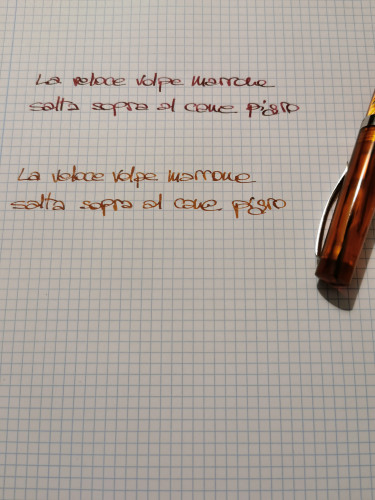 La veloce volpe marrone
salta sopra al cane pigro
La veloce volpe marrone
salta sopra al cane pigro